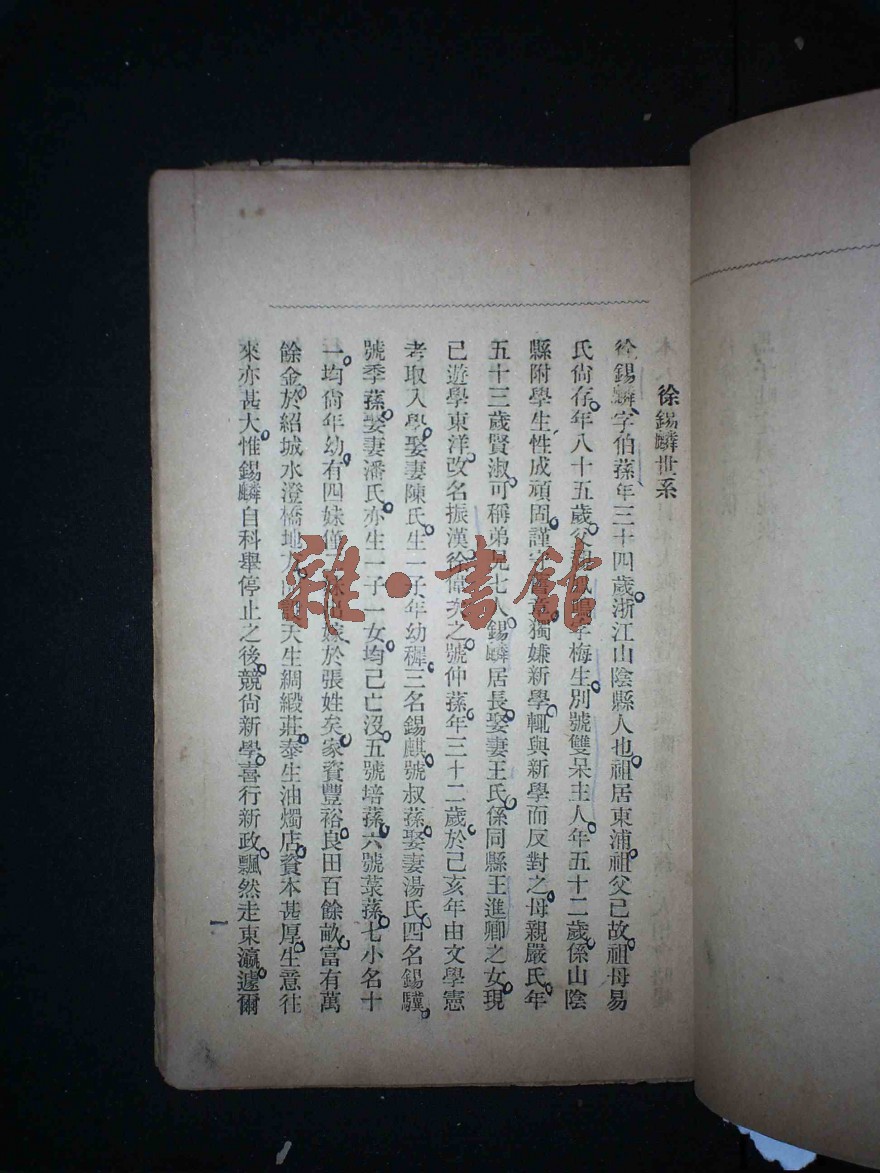 徐錫麟世系
徐錫麟、字伯蓀年三十四歲。浙江山陰縣人也。祖居東浦。祖父已故。祖母易
氏尙存。年八十五歲。父親鳳鳴、字梅生。別號雙呆主人。年五十二歲。係山陰
縣附學生性成頑固。謹守舊章。獨嫌新學。輒與新學而反對之。母親嚴氏。年
五十三歲賢淑。可稱弟兄七人。錫麟居長。娶妻王氏。係同縣王進卿之女。現
已遊學東洋。改名振漢。徐偉次之。號仲蓀。年三十二歲。於己亥年由文學憲
考取入學。娶妻陳氏。生一子。年幼穉。三名錫麒。號叔蓀。娶妻湯氏。四名錫驥。
號季蓀。娶妻潘氏。亦生一子一女。均已亡沒。五號培蓀。六號蓀。七小名十
一。均尙年幼。有四妹。僅妹出嫁於張姓矣。家資豐裕。良田百餘畝。富有萬
餘金。於紹城水澄橋地方。開設天生綢緞莊。泰生油燭店。資本甚厚。生意往
來亦甚大。惟錫麟自科舉停止之後。競尙新學。喜行新政。飄然走東瀛。遽爾
一
雜·書館